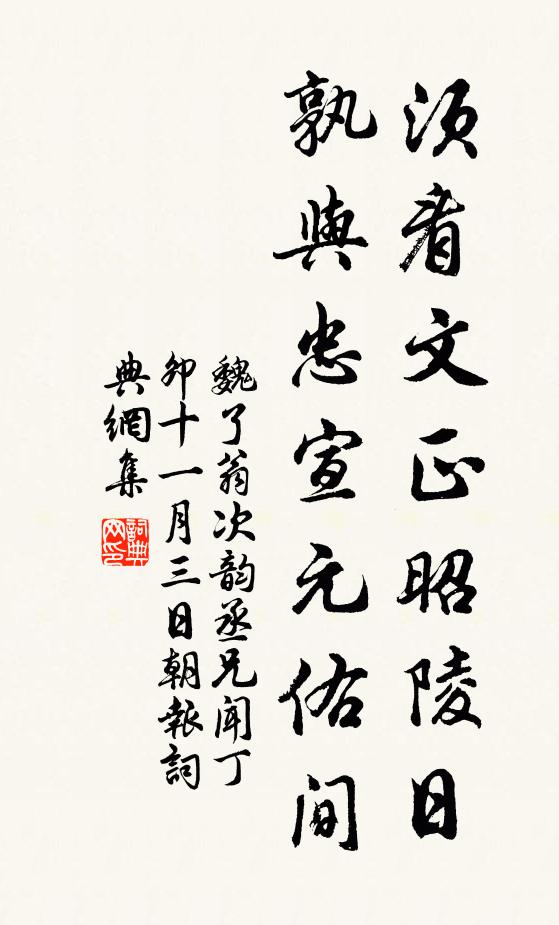 须看文正昭陵日
孰與忠宣元佑间
魏了翁次韵丞兄闻丁
卯十一月三日朝報詞
典網集
詞典网印